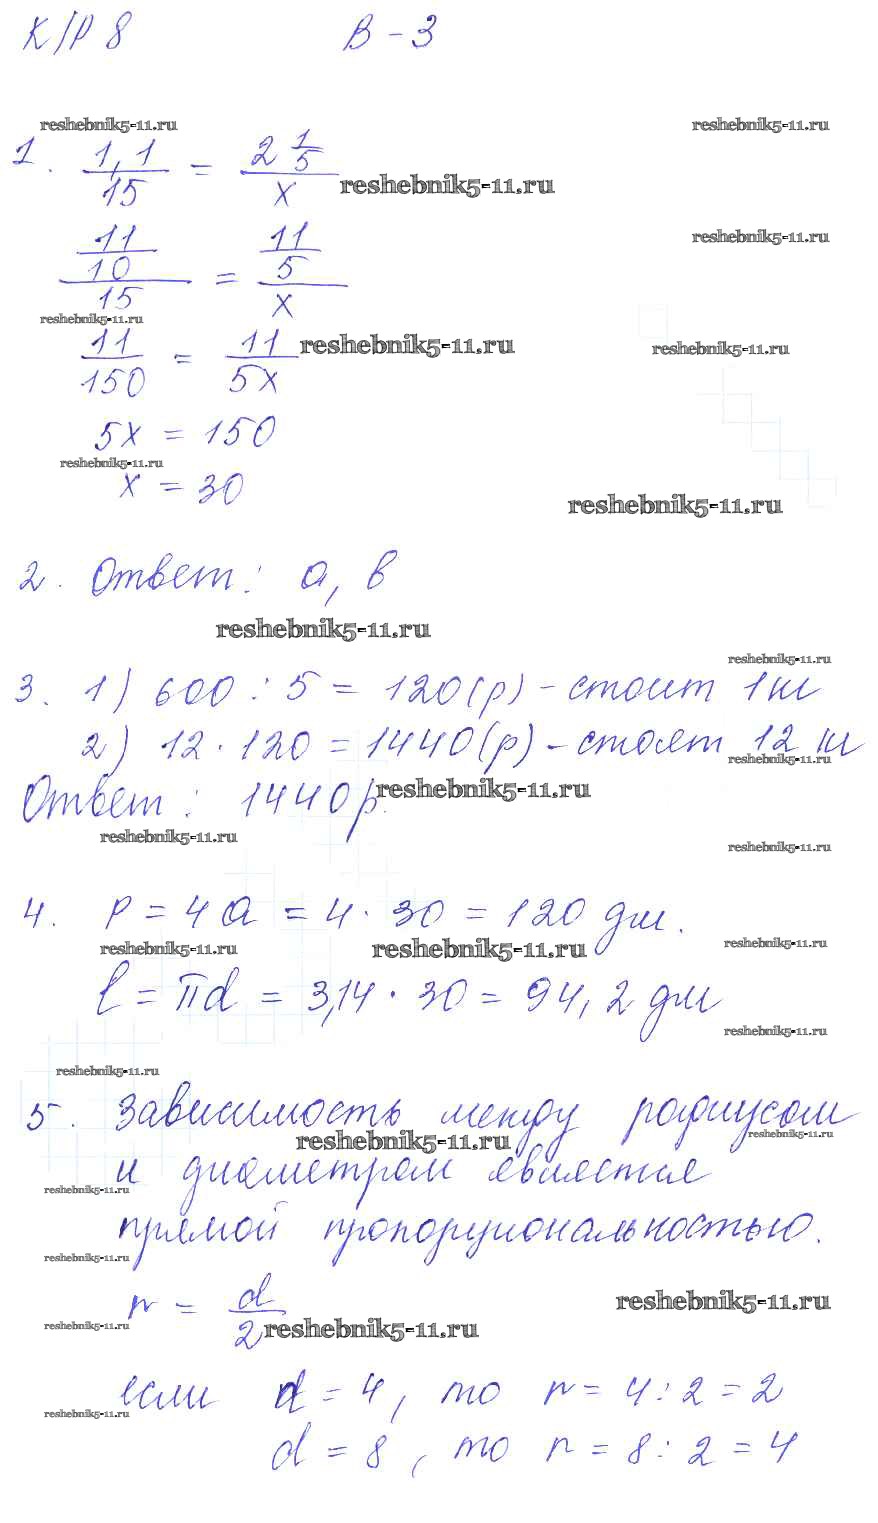 К/Р 8 В - 3
reshebnik5-11.ru reshebnik5-11.ru
1. 1,1/15 = 2 1/5/x reshebnik5-11.ru
reshebnik5-11.ru
11/10/15 = 11/5/x
reshebnik5-11.ru
11/150 = 11/5x reshebnik5-11.ru reshebnik5-11.ru
5x = 150
reshebnik5-11.ru
x = 30
reshebnik5-11.ru
2. Ответ: а, в
reshebnik5-11.ru
reshebnik5-11.ru
3. 1) 600 : 5 = 120(р) - стоит 1 кг
2) 12 · 120 = 1440(р) - стоят 12 кг
reshebnik5-11.ru
Ответ: 1440р. reshebnik5-11.ru
reshebnik5-11.ru reshebnik5-11.ru
4. P = 4a = 4 · 30 = 120 дм.
reshebnik5-11.ru reshebnik5-11.ru reshebnik5-11.ru
l = πd = 3,14 · 30 = 94,2 дм
reshebnik5-11.ru
reshebnik5-11.ru
5. Зависимость между радиусом
reshebnik5-11.ru reshebnik5-11.ru
и диаметром является
reshebnik5-11.ru
прямой пропорциональностью.
reshebnik5-11.ru
r = d/2 reshebnik5-11.ru
reshebnik5-11.ru reshebnik5-11.ru
если d = 4, то r = 4 : 2 = 2
reshebnik5-11.ru
d = 8, то r = 8 : 2 = 4